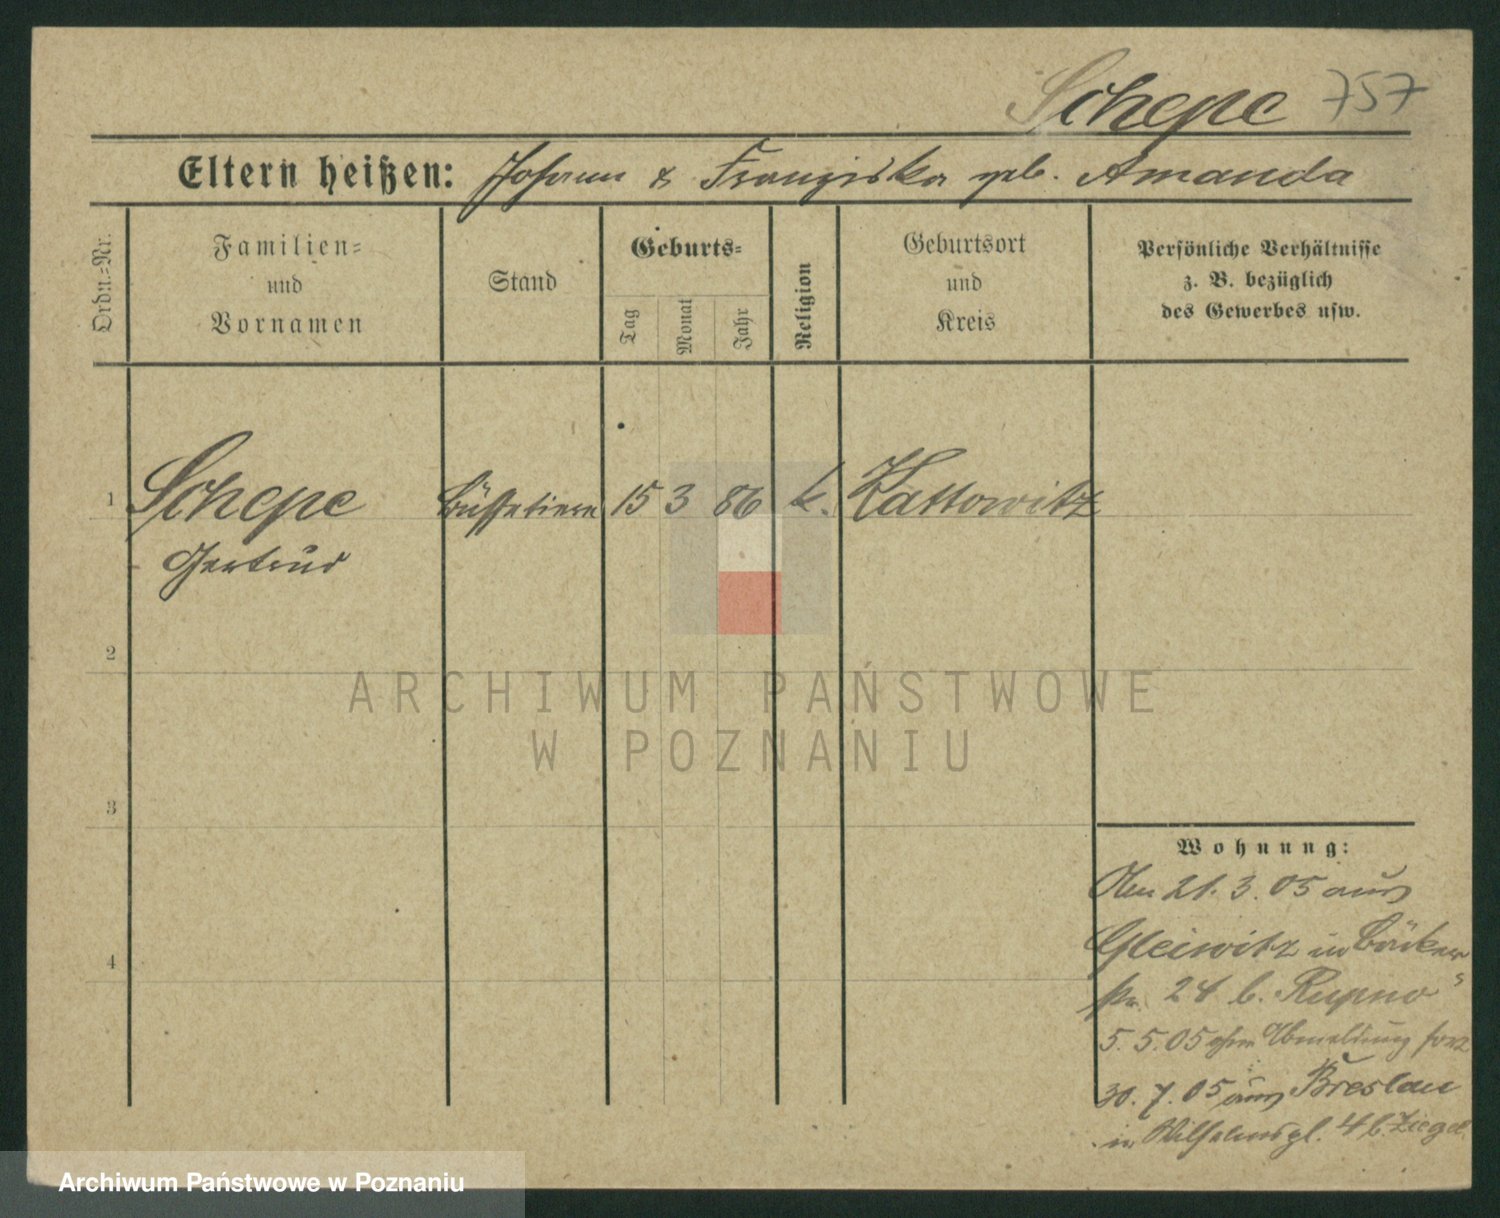 Schepe 757
Eltern heißen: Johann & Franziska geb. Amanda
Ordn.-Nr.
Familien-
und
Vornamen
Stand
Geburts-
Tag
Monat
Jahr
Religion
Geburtsort
und
Kreis
Persönliche Verhältnisse
z. B. bezüglich
des Gewerbes usw.
1 Schepe Büffetiere 15 3 86 k. Kattowitz
Gertrud
2
3
4
Wohnung:
Am 21. 3. 05 aus
Gleiwitz in Bäcker
str. 24 b. Rupno
5. 5. 05 ohne Abmeldung fort
30. 7. 05 aus Breslau
in Wilhelmspl. 4 b. Ziegel
ARCHIWUM PAŃSTWOWE
W POZNANIU
Archiwum Państwowe w Poznaniu